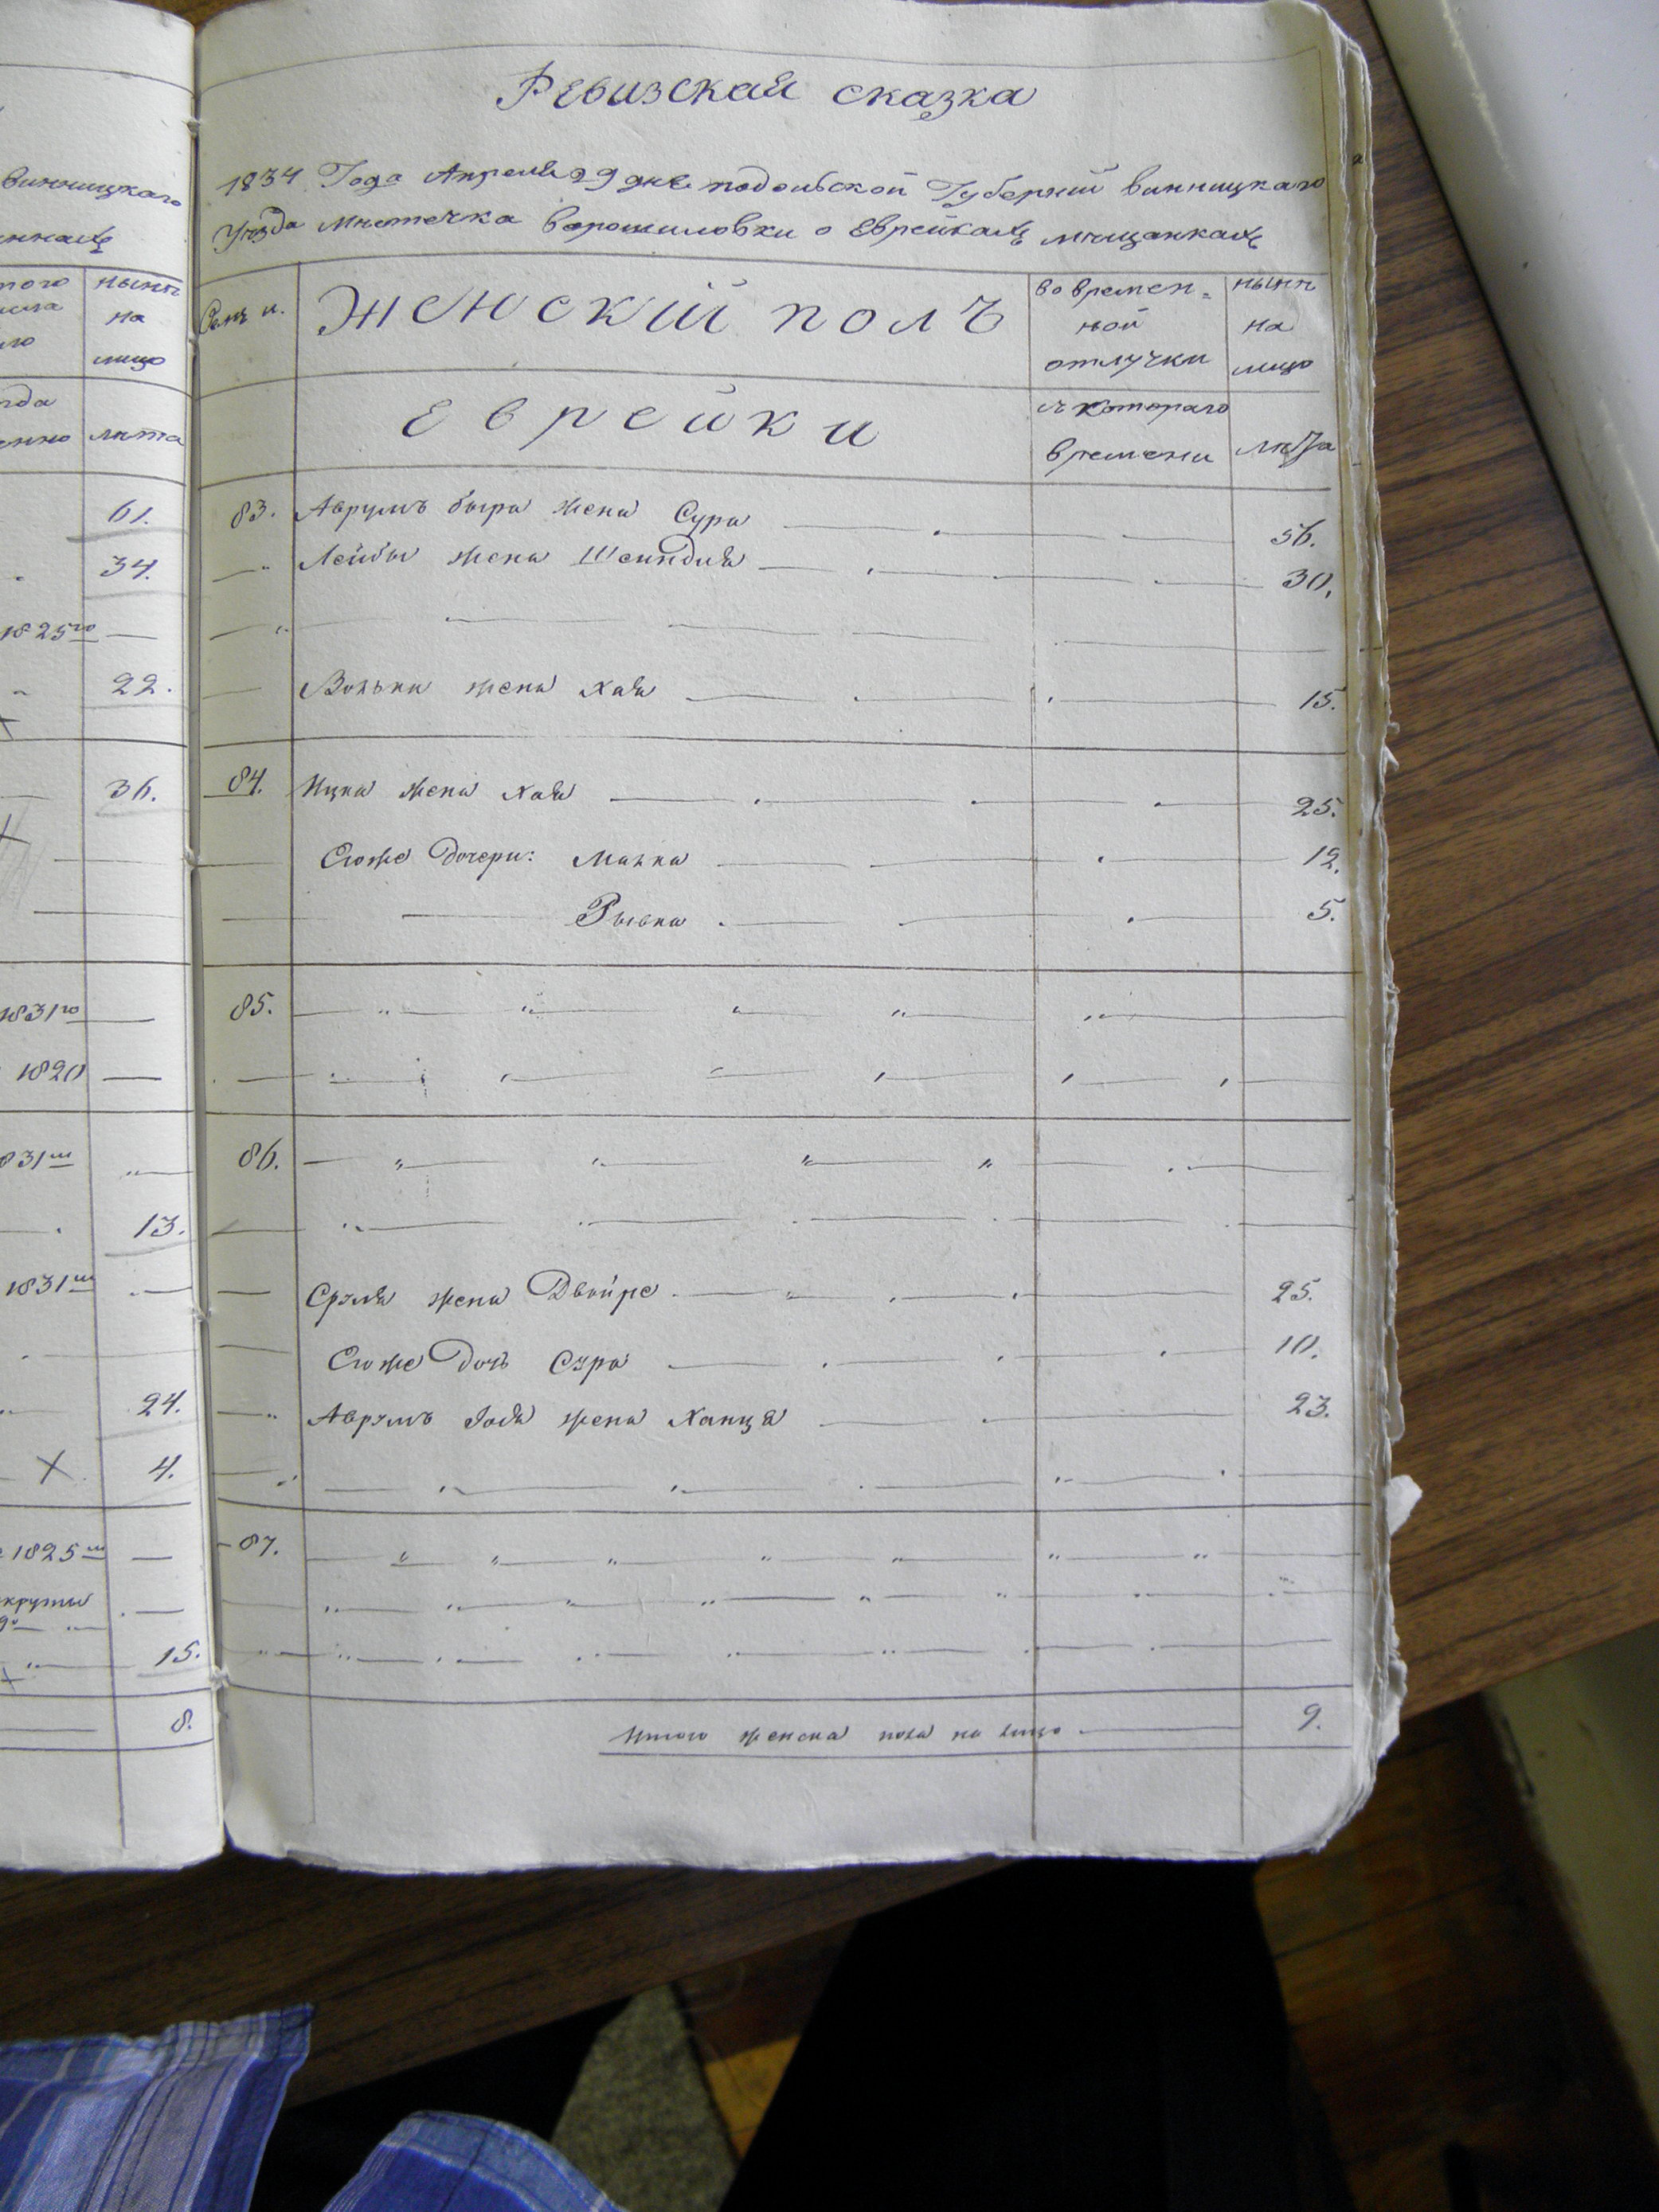 винницкаго
61.
34.
1825го
22.
36.
1831го
1820
831го
13.
1831го
24.
4.
1825го
15.
8.
Ревизская сказка
1834 Года Апреля 29 дня подольской Губерний винницкаго
Уезда Мистечка Ворошиловки о Еврейкахъ мещанкахъ
Женский полъ
во времен=
ной
отлучки
нынѣ
на
лицо
Еврейки
съ котораго
времени
лѣта
83. Аврумъ Бера жена Сура 56.
Лейбы жена Шейндля 30.
Волька жена Хая 15.
84. Ицка жена Хая 25.
Егоже Дочери: Малка 12.
Рывка 5.
85.
86.
Сруля жена Двойре 25.
Егоже Дочь Сура 10.
Аврумъ жена Ханця 23.
87.
Итого женска пола на лицо 9.